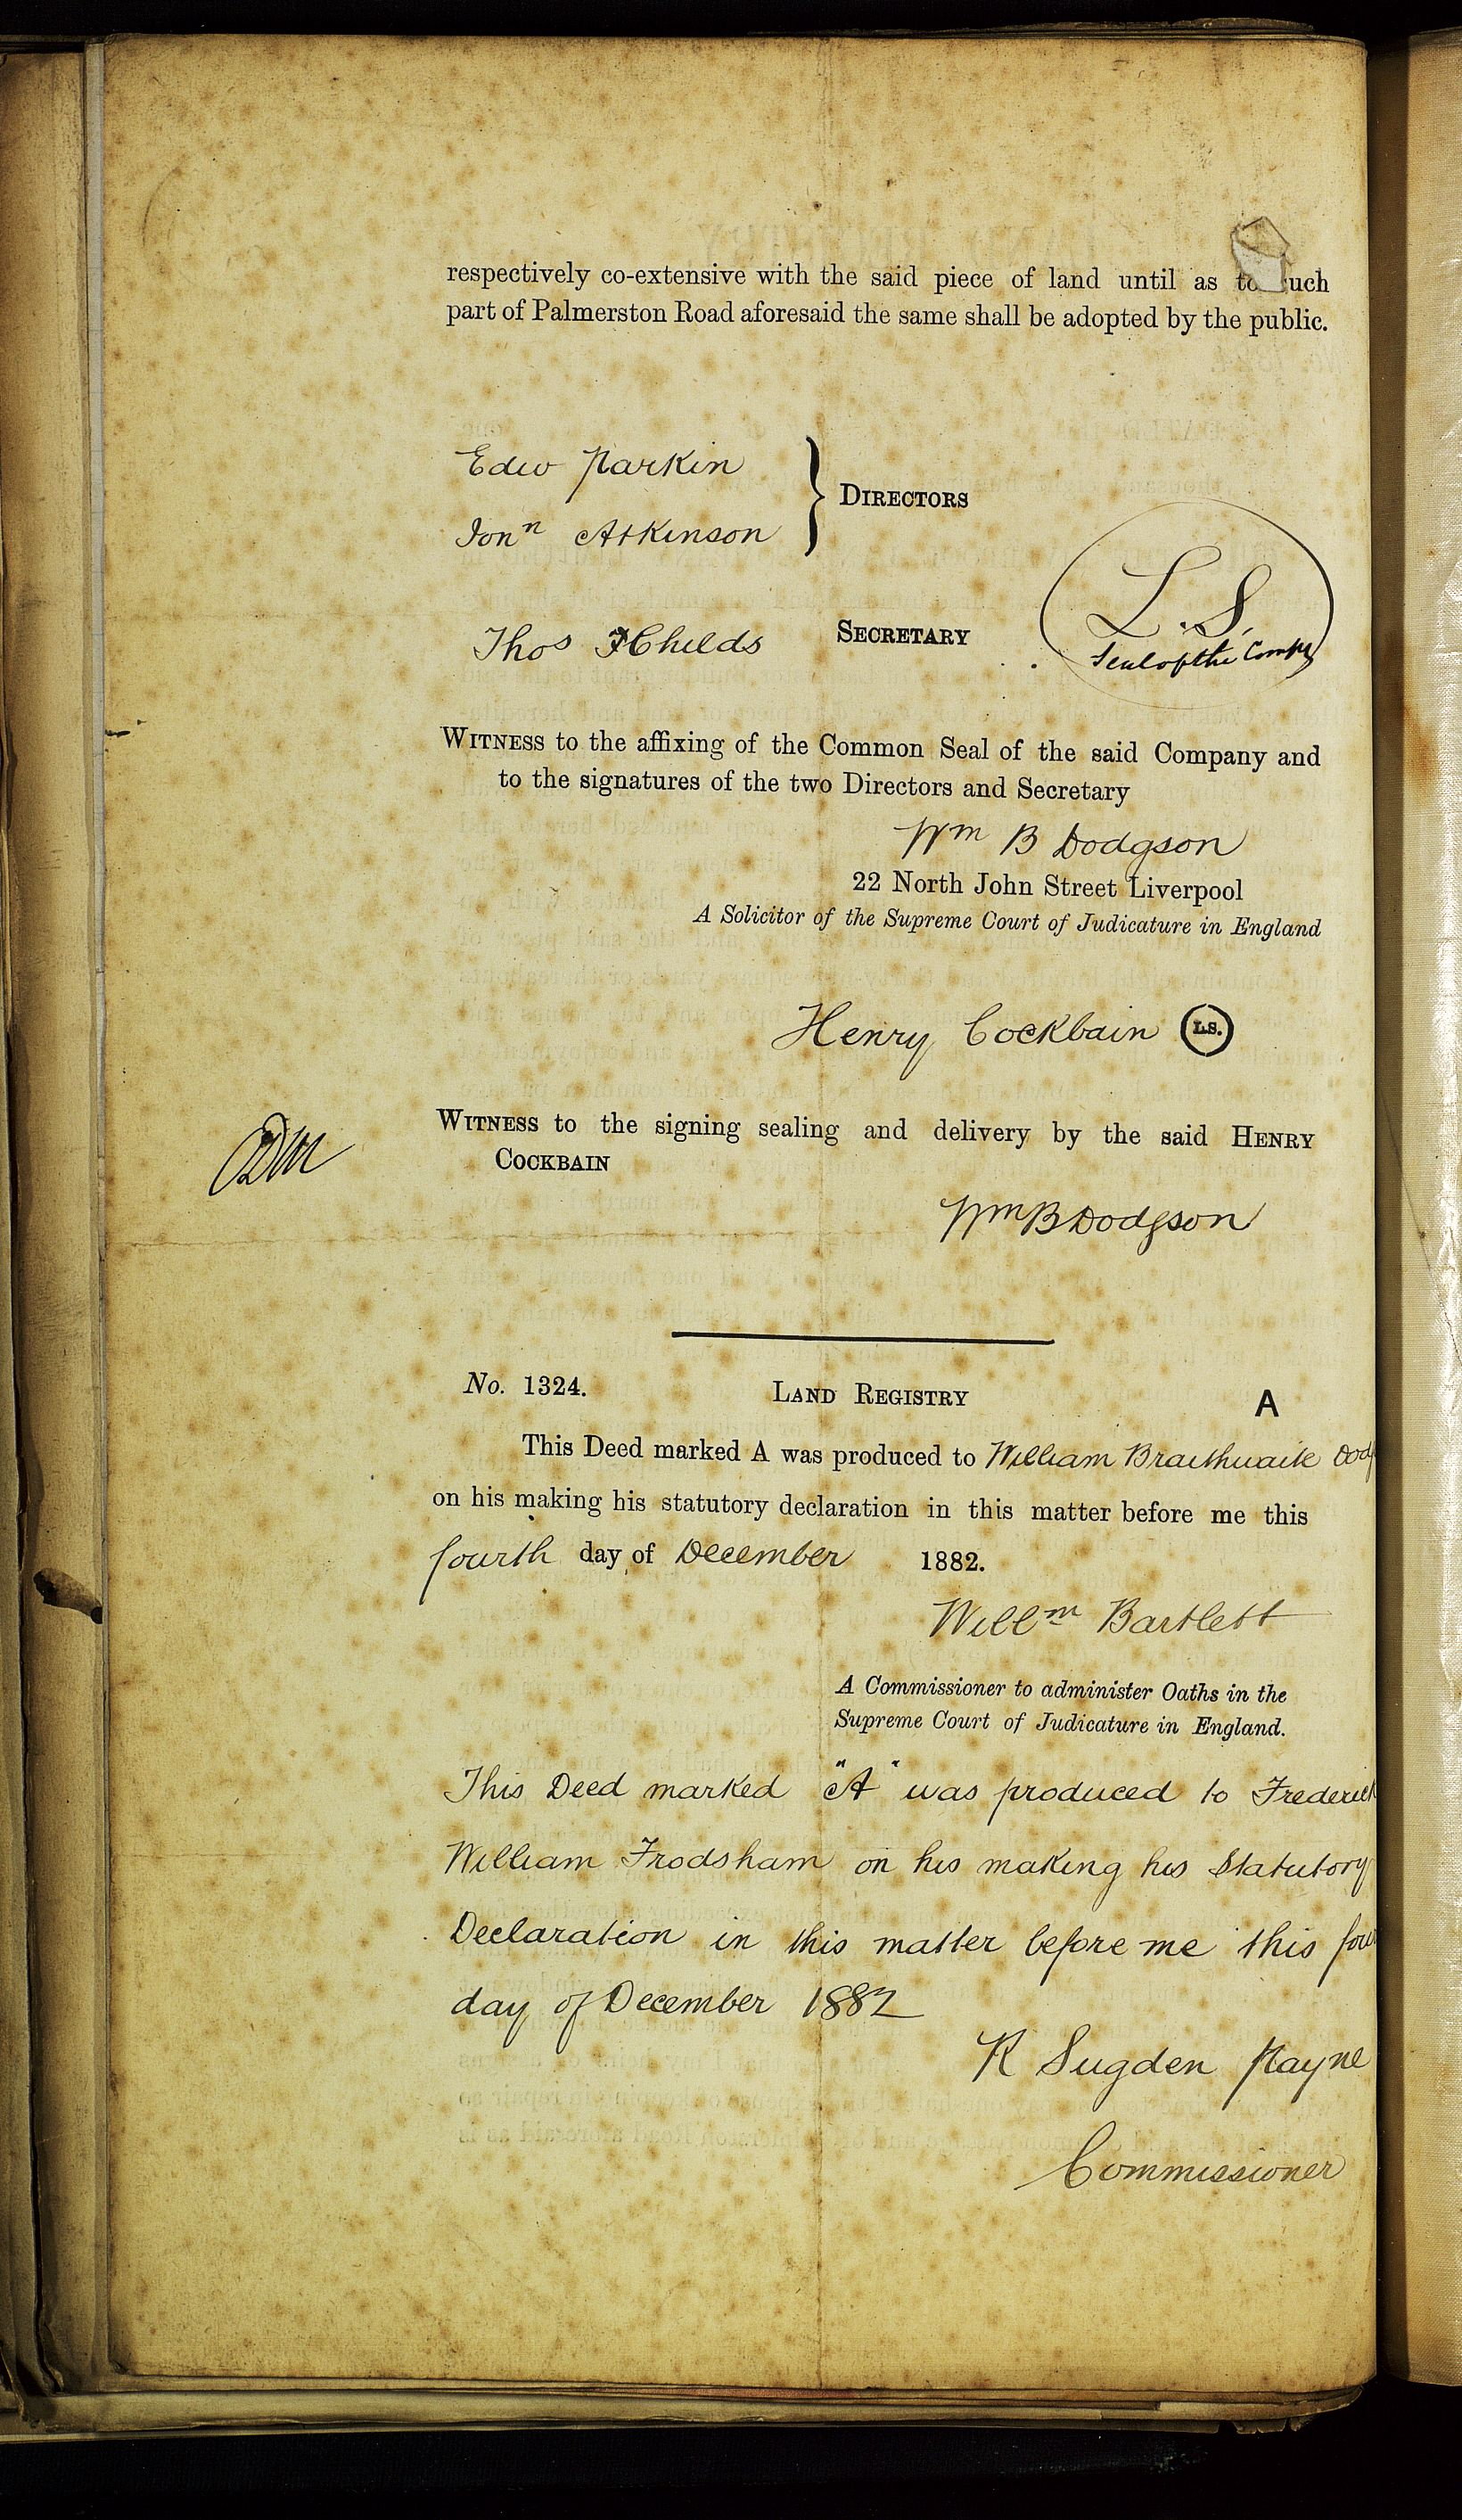 respectively co-extensive with the said piece of land until as to such
part of Palmerston Road aforesaid the same shall be adopted by the public.
Edw Parkin
Jonn Atkinson
} DIRECTORS
Thos F Childs SECRETARY
L.S.
Seal of the Compy
WITNESS to the affixing of the Common Seal of the said Company and
to the signatures of the two Directors and Secretary
Wm B Dodgson
22 North John Street Liverpool
A Solicitor of the Supreme Court of Judicature in England
Henry Cockbain L.S.
WITNESS to the signing sealing and delivery by the said HENRY
COCKBAIN
Wm B Dodgson
No. 1324. LAND REGISTRY A
This Deed marked A was produced to William Braithwaite Dodg
on his making his statutory declaration in this matter before me this
fourth day of December 1882.
Willm Bartlett
A Commissioner to administer Oaths in the
Supreme Court of Judicature in England.
This Deed marked "A" was produced to Frederick
William Frodsham on his making his Statutory
Declaration in this matter before me this four
day of December 1882
R Sugden Payne
Commissioner